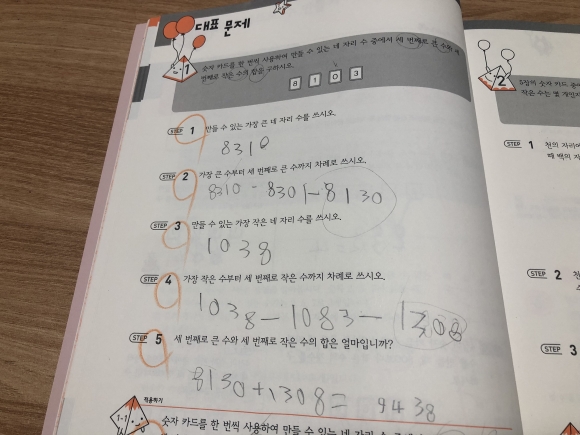 대표 문제
1 숫자 카드를 한 번씩 사용하여 만들 수 있는 네 자리 수 중에서 세 번째로 큰 수와 세
번째로 작은 수의 합을 구하시오.
8 1 0 3
STEP 1 만들 수 있는 가장 큰 네 자리 수를 쓰시오.
8310
STEP 2 가장 큰 수부터 세 번째로 큰 수까지 차례로 쓰시오.
8310 - 8301 - 8130
STEP 3 만들 수 있는 가장 작은 네 자리 수를 쓰시오.
1038
STEP 4 가장 작은 수부터 세 번째로 작은 수까지 차례로 쓰시오.
1038 - 1083 - 1308
STEP 5 세 번째로 큰 수와 세 번째로 작은 수의 합은 얼마입니까?
8130 + 1308 = 9438
적용하기
1-1 숫자 카드를 한 번씩 사용하여 만들 수 있는
2 5장의 숫자 카드
작은 수는 몇
STEP 1 천의 자리에
때 백의 자
STEP 2
STEP 3